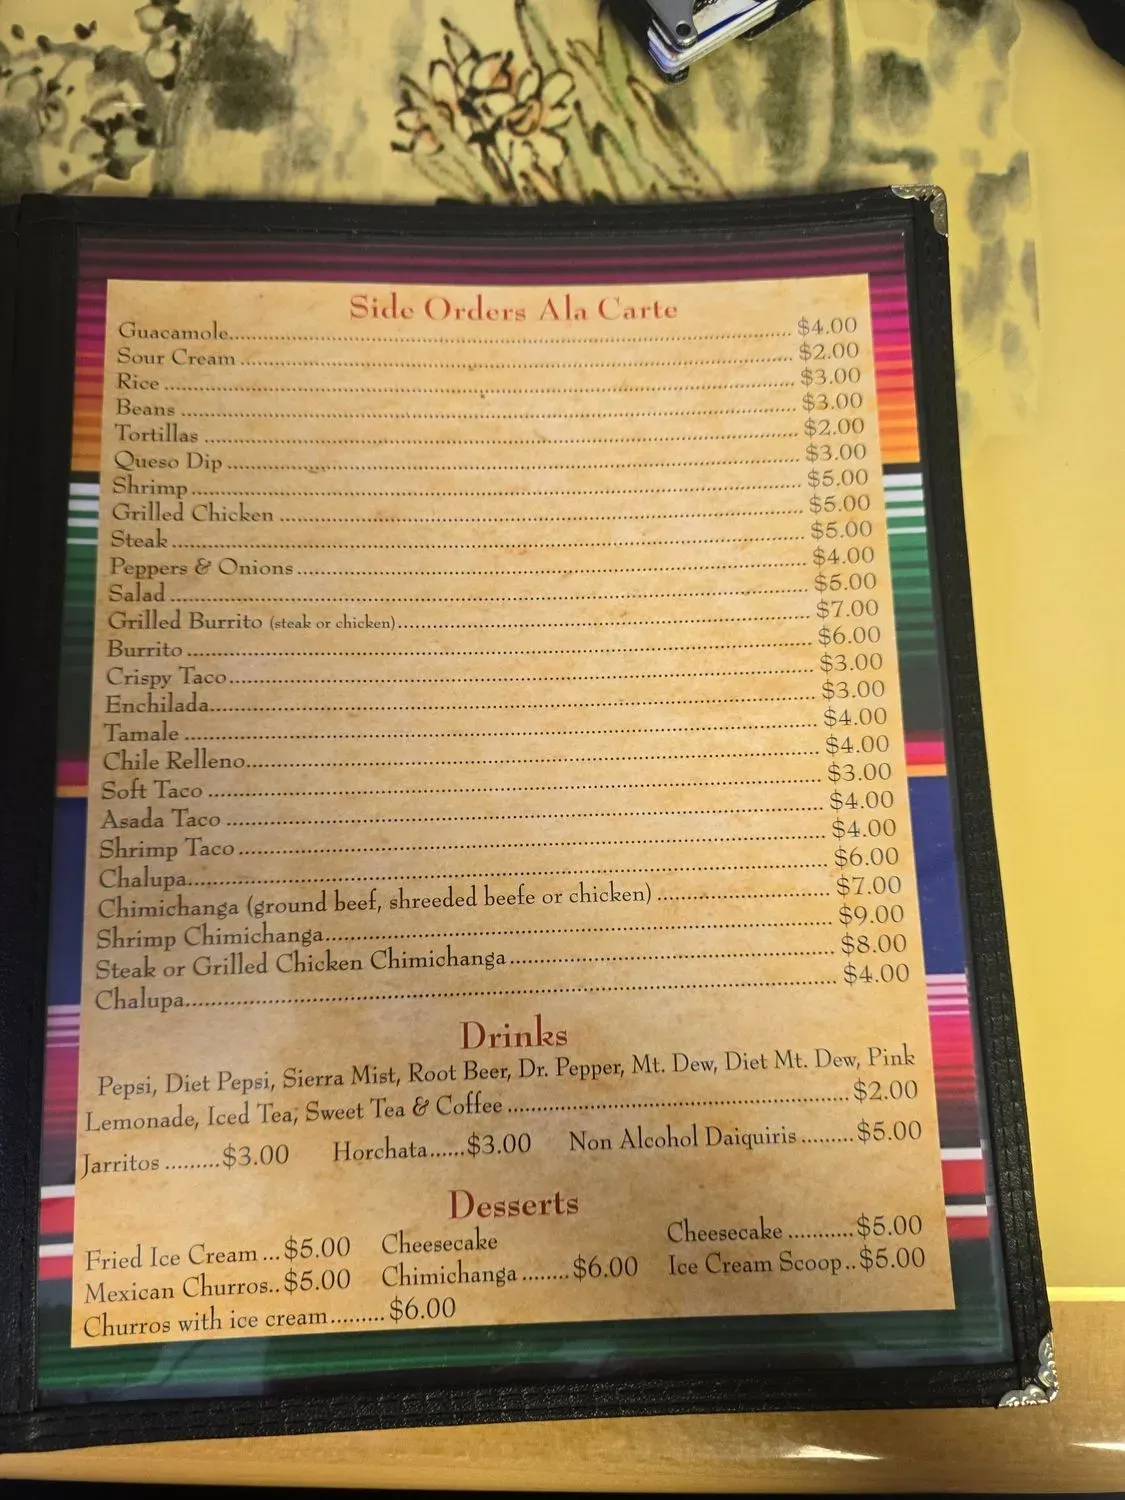 Side Orders Ala Carte
Guacamole.......... $4.00
Sour Cream .......... $2.00
Rice .......... $3.00
Beans .......... $3.00
Tortillas .......... $2.00
Queso Dip .......... $3.00
Shrimp .......... $5.00
Grilled Chicken .......... $5.00
Steak .......... $5.00
Peppers & Onions .......... $4.00
Salad .......... $5.00
Grilled Burrito (steak or chicken) .......... $7.00
Burrito .......... $6.00
Crispy Taco .......... $3.00
Enchilada .......... $3.00
Tamale .......... $4.00
Chile Relleno .......... $4.00
Soft Taco .......... $3.00
Asada Taco .......... $4.00
Shrimp Taco .......... $4.00
Chalupa .......... $6.00
Chimichanga (ground beef, shreeded beefe or chicken) .......... $7.00
Shrimp Chimichanga .......... $9.00
Steak or Grilled Chicken Chimichanga .......... $8.00
Chalupa .......... $4.00
Drinks
Pepsi, Diet Pepsi, Sierra Mist, Root Beer, Dr. Pepper, Mt. Dew, Diet Mt. Dew, Pink
Lemonade, Iced Tea, Sweet Tea & Coffee .......... $2.00
Jarritos .........$3.00 Horchata......$3.00 Non Alcohol Daiquiris .........$5.00
Desserts
Fried Ice Cream ...$5.00 Cheesecake Cheesecake ...........$5.00
Mexican Churros..$5.00 Chimichanga ........$6.00 Ice Cream Scoop..$5.00
Churros with ice cream.........$6.00